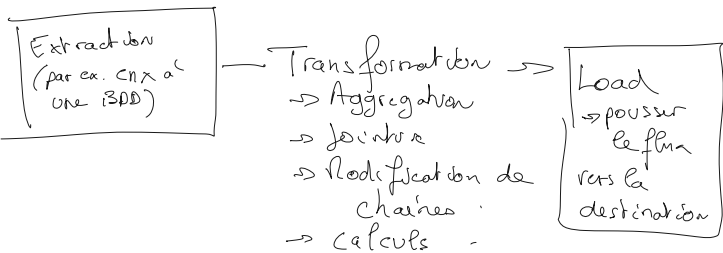 Extraction
(par ex. cnx à
une BDD)
Transformation
→ Aggregation
→ Jointure
→ Modification de
chaînes
→ calculs
Load
→ pousser
le flux
vers la
destination